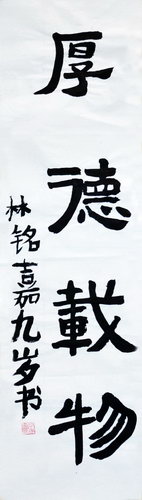 厚德載物
林铭嘉九岁书